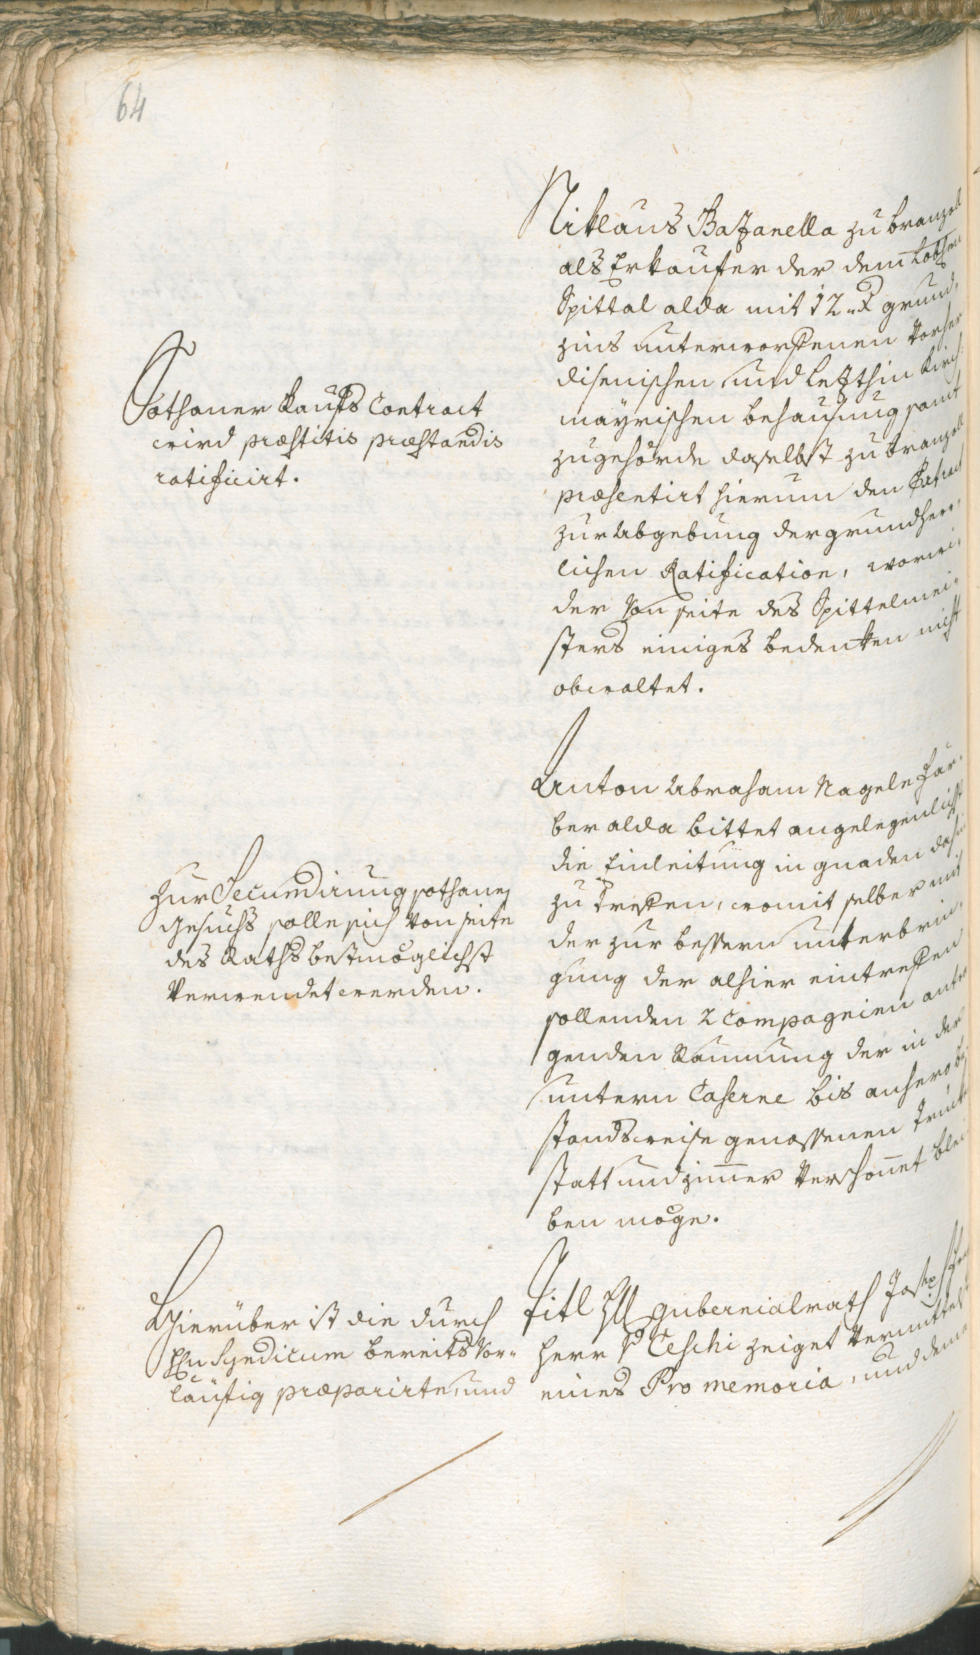 64
Niklaus Bazanella zu branzoll
als Erkaufer der dem Löbl:en
Spittal alda mit 12 x grund,
zins unterworfenen
disenischen und letzthin Kirch
mayrischen behausung samt
zugehörde daselbst zu branzoll
præsentirt hierum den Extract
zur Abgebung der grundherr,
lichen Ratification, worwi,
der von seite des Spittelmei,
sters einiges bedenken nicht
obwaltet.
Sothaner Kaufs Contract
wird præstitis præstandis
ratificirt.
Anton Abraham Nagele Fär,
ber alda bittet angelegenlichst
die Einleitung in gnaden dahin
zu treffen, womit selber mit
der zur bessern unterbrin,
gung der alhier eintreffen
sollenden 2 Compagnien
genden Raumung der in der
untern Caserne bis anhero be
standsweise genossenen Truk
statt und zimmer verschonnet blei
ben möge.
Zur Secundirung sothanes
Gesuchs solle sich von seite
des Raths bestmöglichst
verwendet werden.
Titl H gubernialrath Joseph Frey
herr v Ceschi zeiget vermittels
eines Pro memoria, und dem
Hierüber ist die durch
Hn Syndicum bereits vor,,
läufig præparirte, und